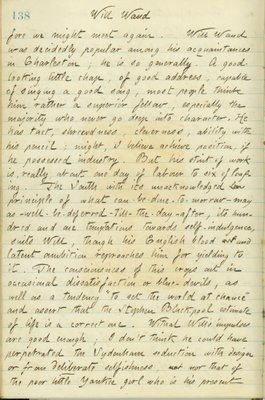 138
Will Waud
fore we might meet again. Will Waud
was decidedly popular among his acquaintances
in Charleston; he is so generally. A good-
looking little chap, of good address, capable
of singing a good song, most people think
him rather a superior fellow, especially the
majority who never go deep into character. He
has tact, shrewdness, cleverness, ability with
his pencil; might, I believe achieve position, if
he possessed industry. But his stint of work
is, really about one day of labour to six of loaf-
ing. The South with its unacknowledged
principle of what can-be-done-to-morrow-may
as-well-be-deferred-till-the-day-after, its hun-
dred and one temptations towards self-indulgence,
suits Will, though his English blood and
latent ambition reproaches him for yielding to
it. The consciousness of this crops out in
occasional dissatisfaction or blue-devils, as
well as a tendency "to set the world at chance"
and assert that the Stephen Blackpool estimate
of life is a correct one. Withal Will's impulses
are good enough; I don't think he could have
perpetrated the Sydenham seduction with design
or from deliberate selfishness, nor that of
the poor little Yankee girl who is his present